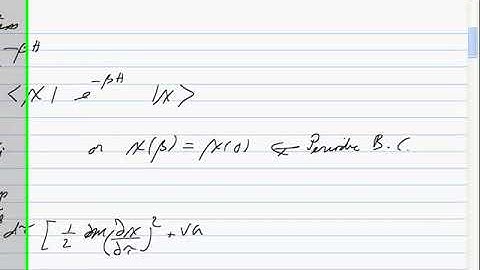 -βH
<x| e^{-βH} |x>
or x(β) = x(0) ⇐ Periodic B.C.
dτ [ 1/2 m (∂x/∂τ)^2 + Va